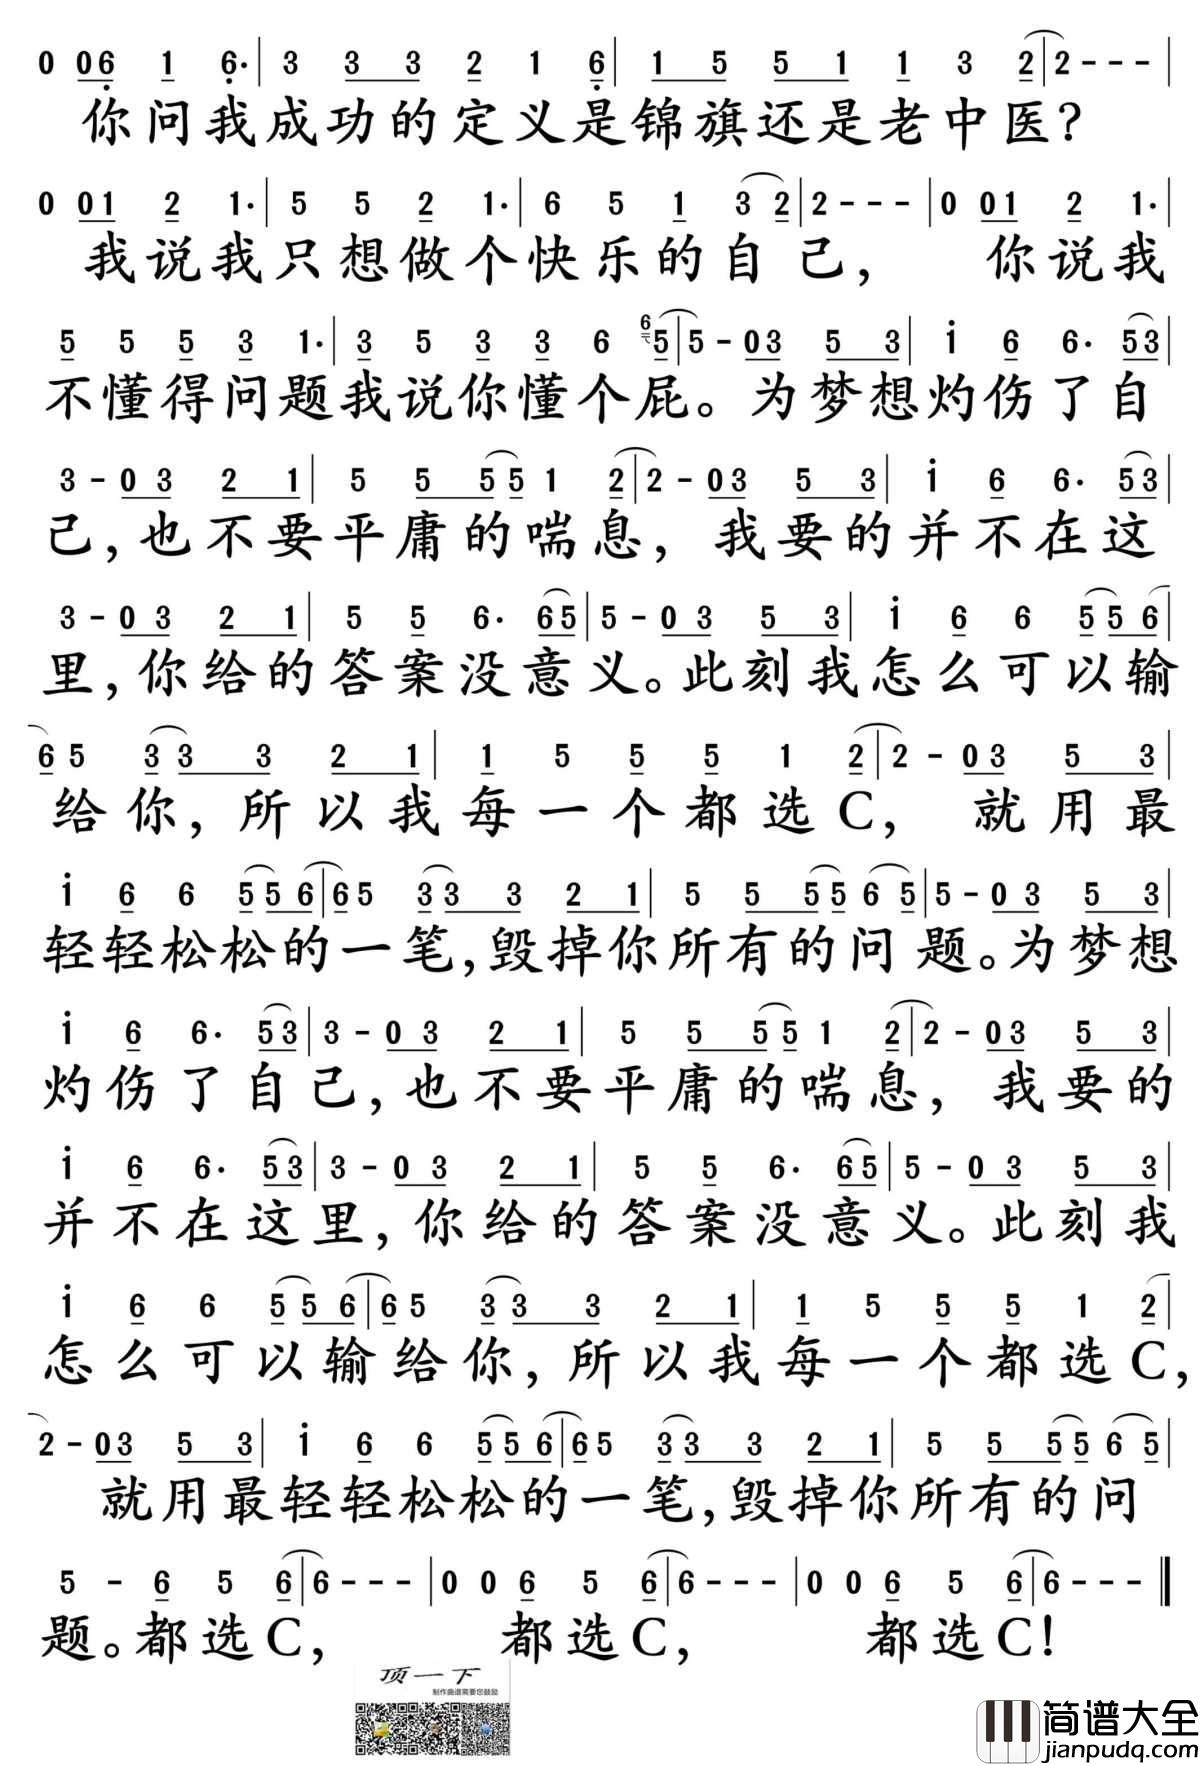 0 06 1 6·| 3 3 3 2 1 6| 1 5 5 1 1 3 2|2---|
你问我成功的定义是锦旗还是老中医?
0 01 2 1·| 5 5 2 1·| 6 5 1 3 2|2---|0 01 2 1·|
我说我只想做个快乐的自己, 你说我
5 5 5 3 1·|3 5 3 3 6 6 5|5-03 5 3|i 6 6· 53|
不懂得问题我说你懂个屁。为梦想灼伤了自
3-0 3 2 1| 5 5 5 5 1 2|2-03 5 3|i 6 6· 53|
己,也不要平庸的喘息, 我要的并不在这
3-0 3 2 1| 5 5 6· 65|5-0 3 5 3|i 6 6 5 5 6|
里,你给的答案没意义。此刻我怎么可以输
6 5 3 3 3 2 1| 1 5 5 5 1 2|2-03 5 3|
给你,所以我每一个都选C, 就用最
i 6 6 5 5 6|6 5 3 3 3 2 1| 5 5 5 5 6 5|5-0 3 5 3|
轻轻松松的一笔,毁掉你所有的问题。为梦想
i 6 6· 53|3-0 3 2 1| 5 5 5 5 1 2|2-03 5 3|
灼伤了自己,也不要平庸的喘息, 我要的
i 6 6· 53|3-0 3 2 1| 5 5 6· 65|5-0 3 5 3|
并不在这里,你给的答案没意义。此刻我
i 6 6 5 5 6|6 5 3 3 3 2 1| 1 5 5 5 1 2|
怎么可以输给你,所以我每一个都选C,
2-03 5 3| i 6 6 5 5 6|6 5 3 3 3 2 1| 5 5 5 5 6 5|
就用最轻轻松松的一笔,毁掉你所有的问
5 - 6 5 6|6---|0 0 6 5 6|6---|0 0 6 5 6|6---‖
题。都选C, 都选C, 都选C!
顶一下
制作曲谱需要您鼓励
简谱大全
jianpudq.com